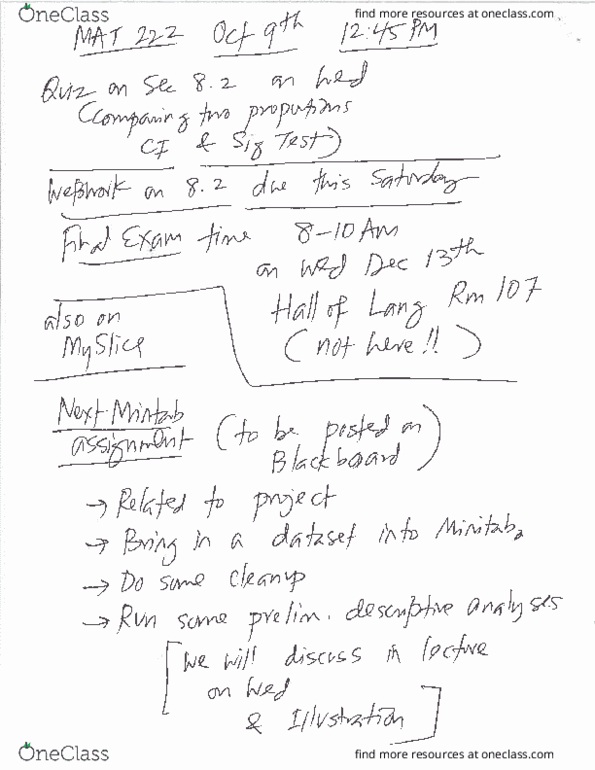 OneClass
find more resources at oneclass.com
MAT 222 Oct 9th 12:45 PM
Quiz on Sec 8.2 on Wed
(Comparing two proportions
CI & Sig Test)
WebWork on 8.2 due this Saturday
Final Exam time 8-10 AM
on Wed Dec 13th
Hall of Lang Rm 107
(not here!!)
also on
MySlice
Next Minitab
assignment (to be posted on
Blackboard)
→ Related to project
→ Bring in a dataset into Minitab,
→ Do some cleanup
→ Run some prelim. descriptive analyses
[We will discuss in lecture
on Wed
& Illustration]
OneClass
find more resources at oneclass.com